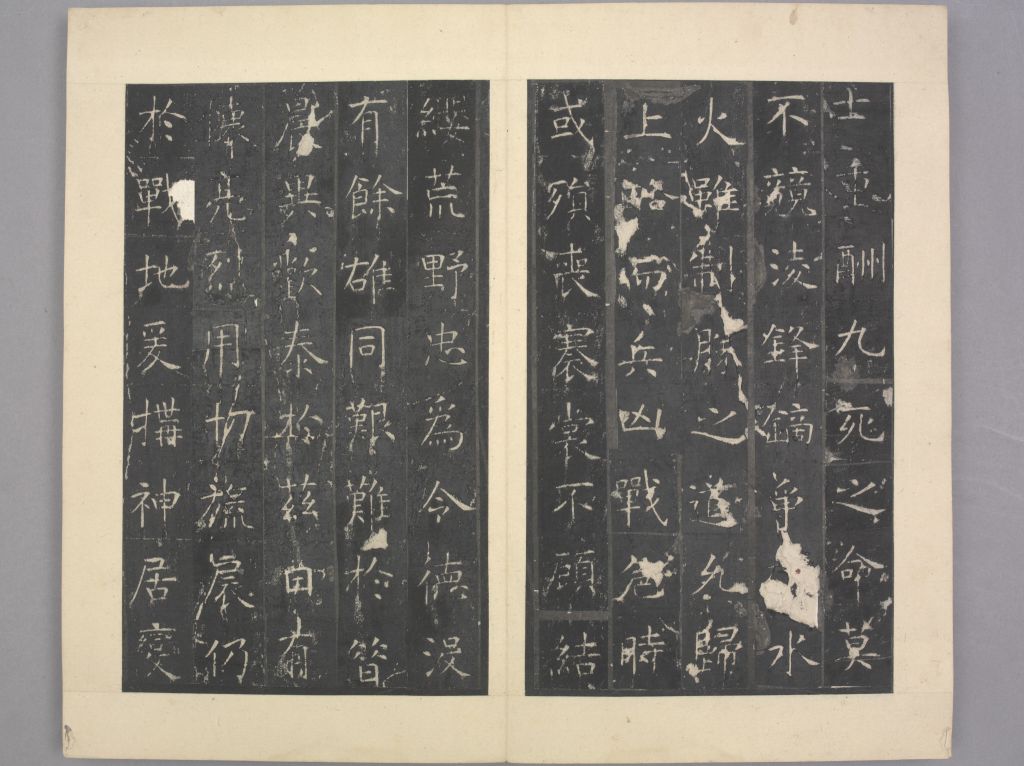 士重酬九死之命莫
不競淩鋒鏑爭水
火雖制勝之道允歸
上略而兵凶戰危時
或殞喪褰裳不顧結
纓荒野忠為令德沒
有餘雄同艱難於昔
晨異歡泰於茲日有
懷亮烈用切旒扆仍
於戰地爰構神居變